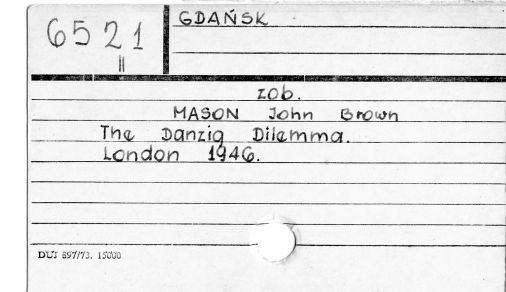 6521
II
GDAŃSK
zob.
MASON John Brown
The Danzig Dilemma.
London 1946.
DUJ 897/73. 15000